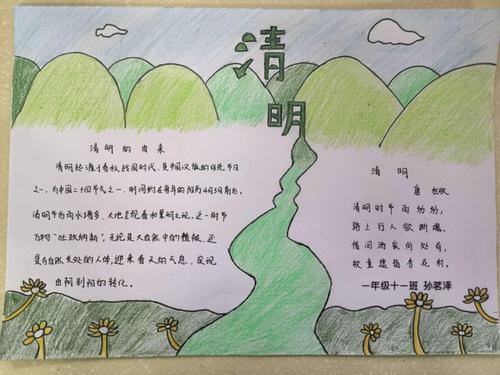 清明
清明的由来
清明起源于春秋战国时代,是中国汉族的传统节日
之一,为中国二十四节气之一,时间约在每年的阳历4月5日前后。
清明节后雨水增多,大地呈现春和景明之现。这一时节
万物"吐故纳新",无论是大自然中的植被,还
是与自然共处的人体,迎来春天的气息,实现
由阴到阳的转化。
清明
唐 杜牧
清明时节雨纷纷,
路上行人欲断魂。
借问酒家何处有,
牧童遥指杏花村。
一年级十一班 孙茗泽